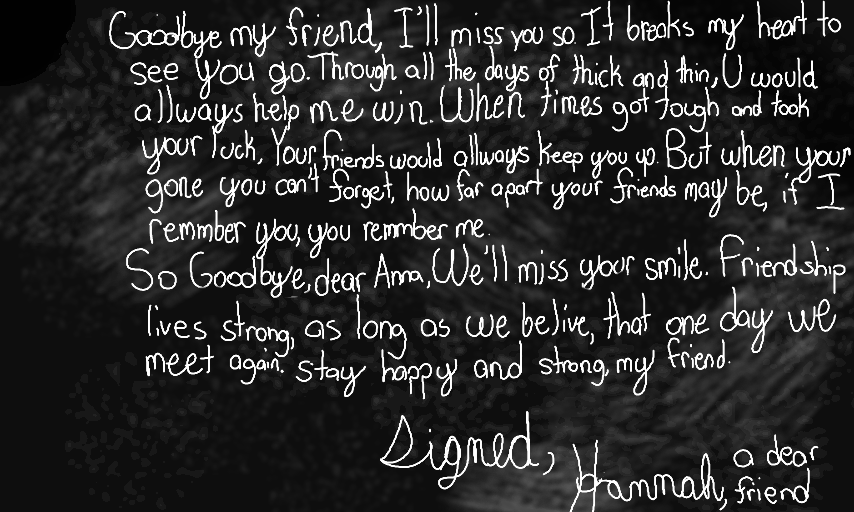 Goodbye my friend, I'll miss you so. It breaks my heart to
see you go. Through all the days of thick and thin, U would
allways help me win. When times got tough and took
your luck, Your friends would allways keep you up. But when your
gone you can't forget, how far apart your friends may be, if I
remmber you, you remmber me.
So Goodbye, dear Anna, We'll miss your smile. Friendship
lives strong, as long as we belive, that one day we
meet again. stay happy and strong, my friend.
Signed,
Hannah, a dear
friend